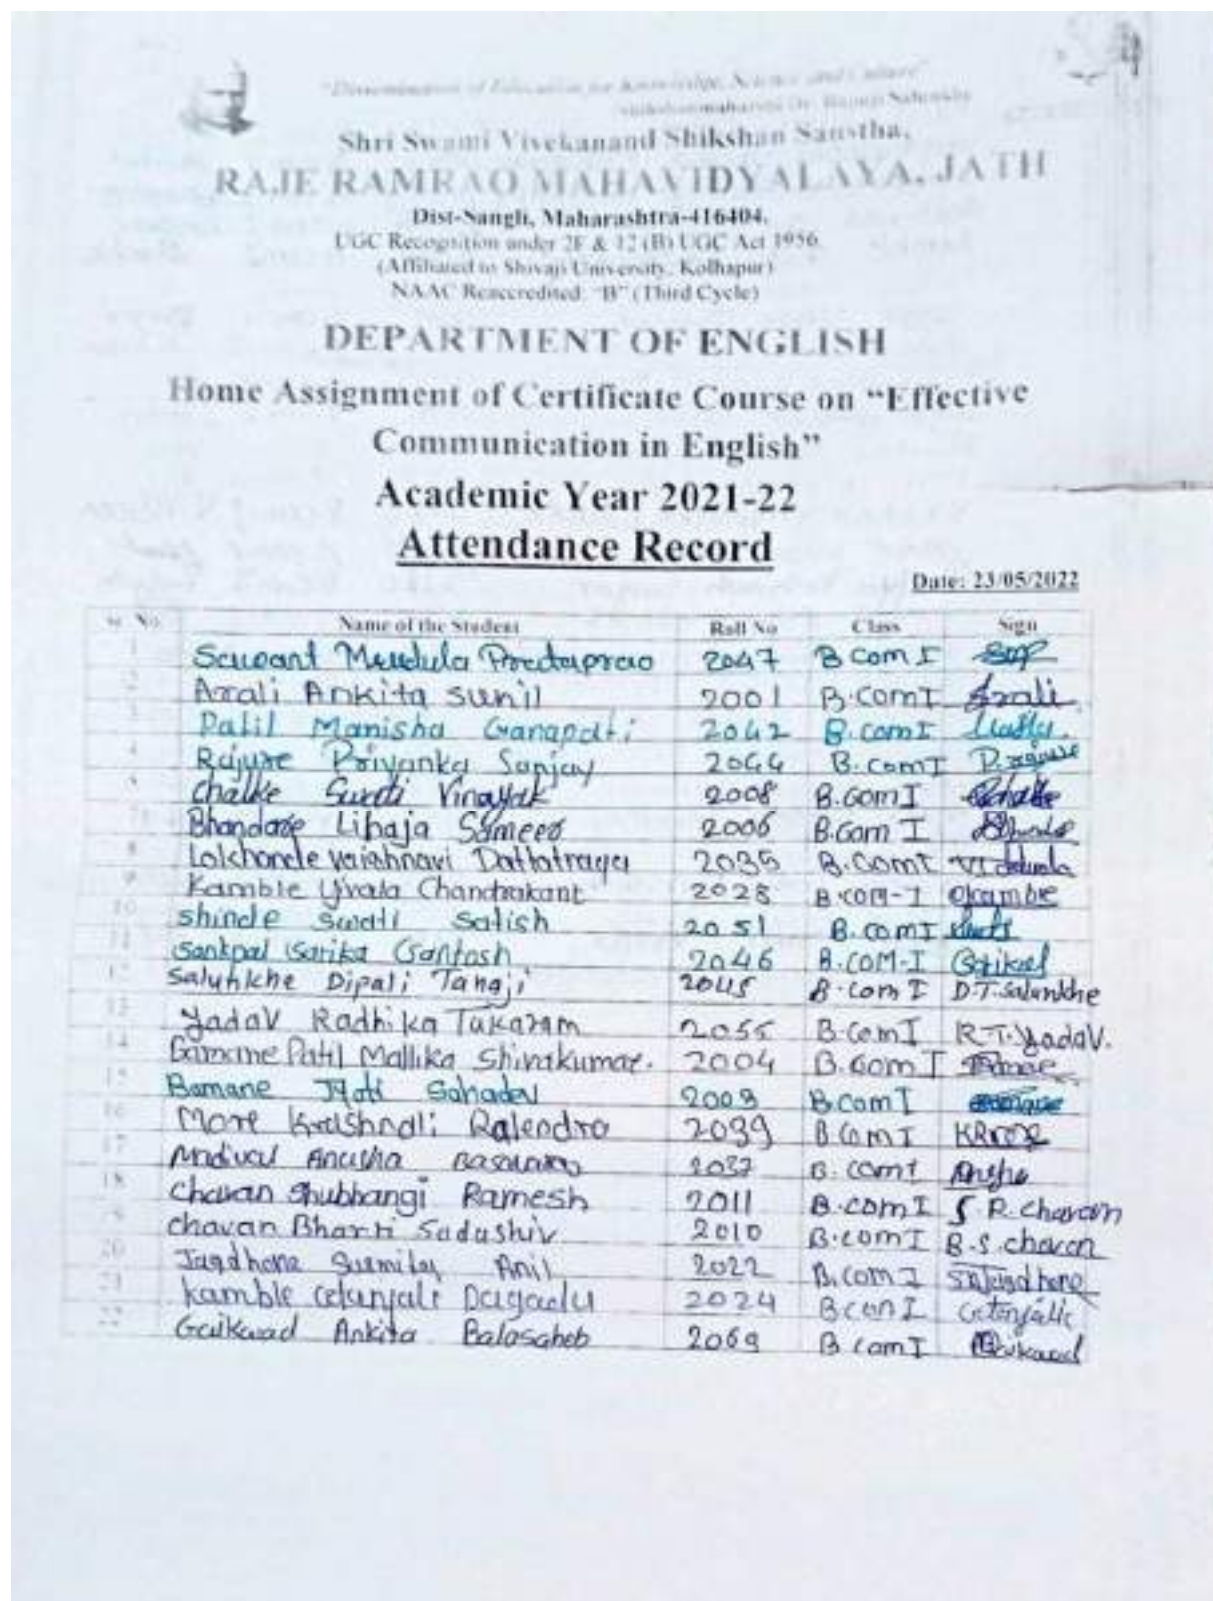 "Dissemination of Education for Knowledge, Science and Culture"
Shikshanmaharshi Dr. Bapuji Salunkhe
Shri Swami Vivekanand Shikshan Sanstha,
RAJE RAMRAO MAHAVIDYALAYA, JATH
Dist-Sangli, Maharashtra-416404.
UGC Recognition under 2F & 12 (B) UGC Act 1956
(Affiliated to Shivaji University, Kolhapur)
NAAC Reaccredited: "B" (Third Cycle)
DEPARTMENT OF ENGLISH
Home Assignment of Certificate Course on "Effective
Communication in English"
Academic Year 2021-22
Attendance Record
Date: 23/05/2022
Sr. No Name of the Student Roll No Class Sign
1 Prataprao 2047 B Com I
2 Arali Ankita Sunil 2001 B.Com I Arali
3 Patil Manisha Ganapati 2042 B.com I
4 Rajure Priyanka Sanjay 2044 B.com I P.rajure
5 Chalke Swati Vinayak 2008 B.Com I Chalke
Bhandare Sameer 2006 B.Com I
8 Lokhande Vaishnavi Dattatraya 2035 B.Com I
9 Kamble Chandrakant 2028 B.COM-I Kamble
10 Shinde Swati Satish 2051 B.com I
11 Sankpal Sarika Santosh 2046 B.COM-I
12 Salunkhe Dipali Tanaji 2045 B.com I D.T.Salunkhe
13 Yadav Radhika Tukaram 2055 B.Com I R.T.Yadav.
14 Bamane Patil Mallika Shivakumar. 2004 B.Com I
15 Bamane Jyoti Sahadev 2003 B.com I
16 More Krushnali Rajendra 2039 B Com I
17 Madival Anusha 2037 B.com I
18 Chavan Shubhangi Ramesh 2011 B.com I S.R.Chavan
Chavan Bharti Sadashiv 2010 B.com I B.S.chavan
20 Jagdhane Anil 2022 B.com I
21 kamble Getanjali Dagadu 2024 B com I
22 Gaikwad Ankita Balasaheb 2069 B Com I Gaikwad